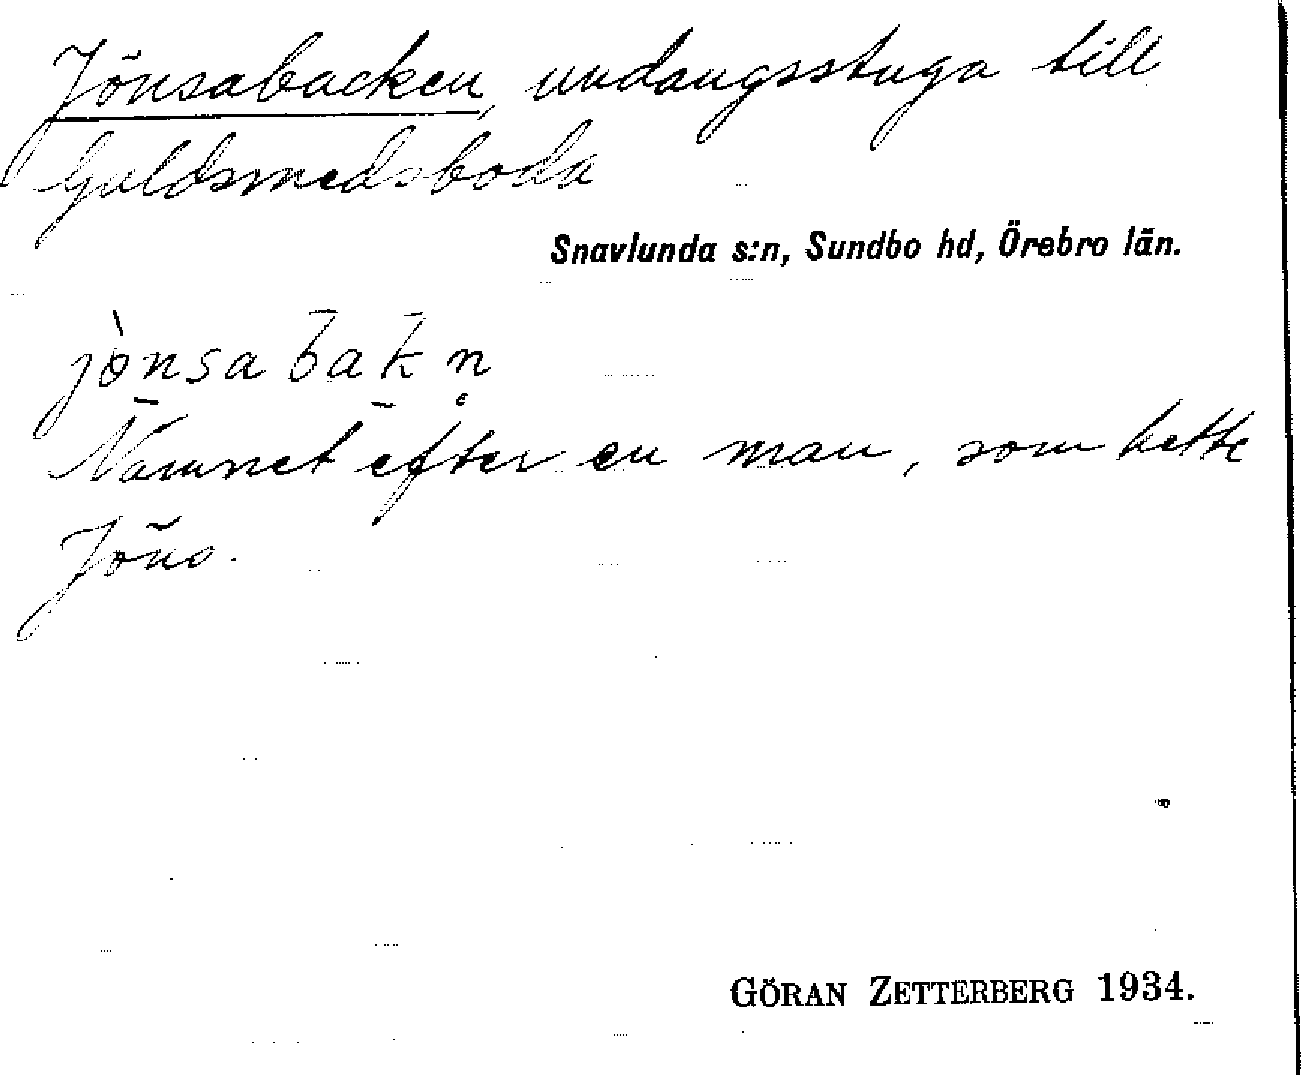 Jönsabacken, undangsstuga till
Guldsmedsboda
Snavlunda s:n, Sundbo hd, Örebro län.
jònsabakn̥
Namnet efter en man, som hette
Jöns.
GÖRAN ZETTERBERG 1934.